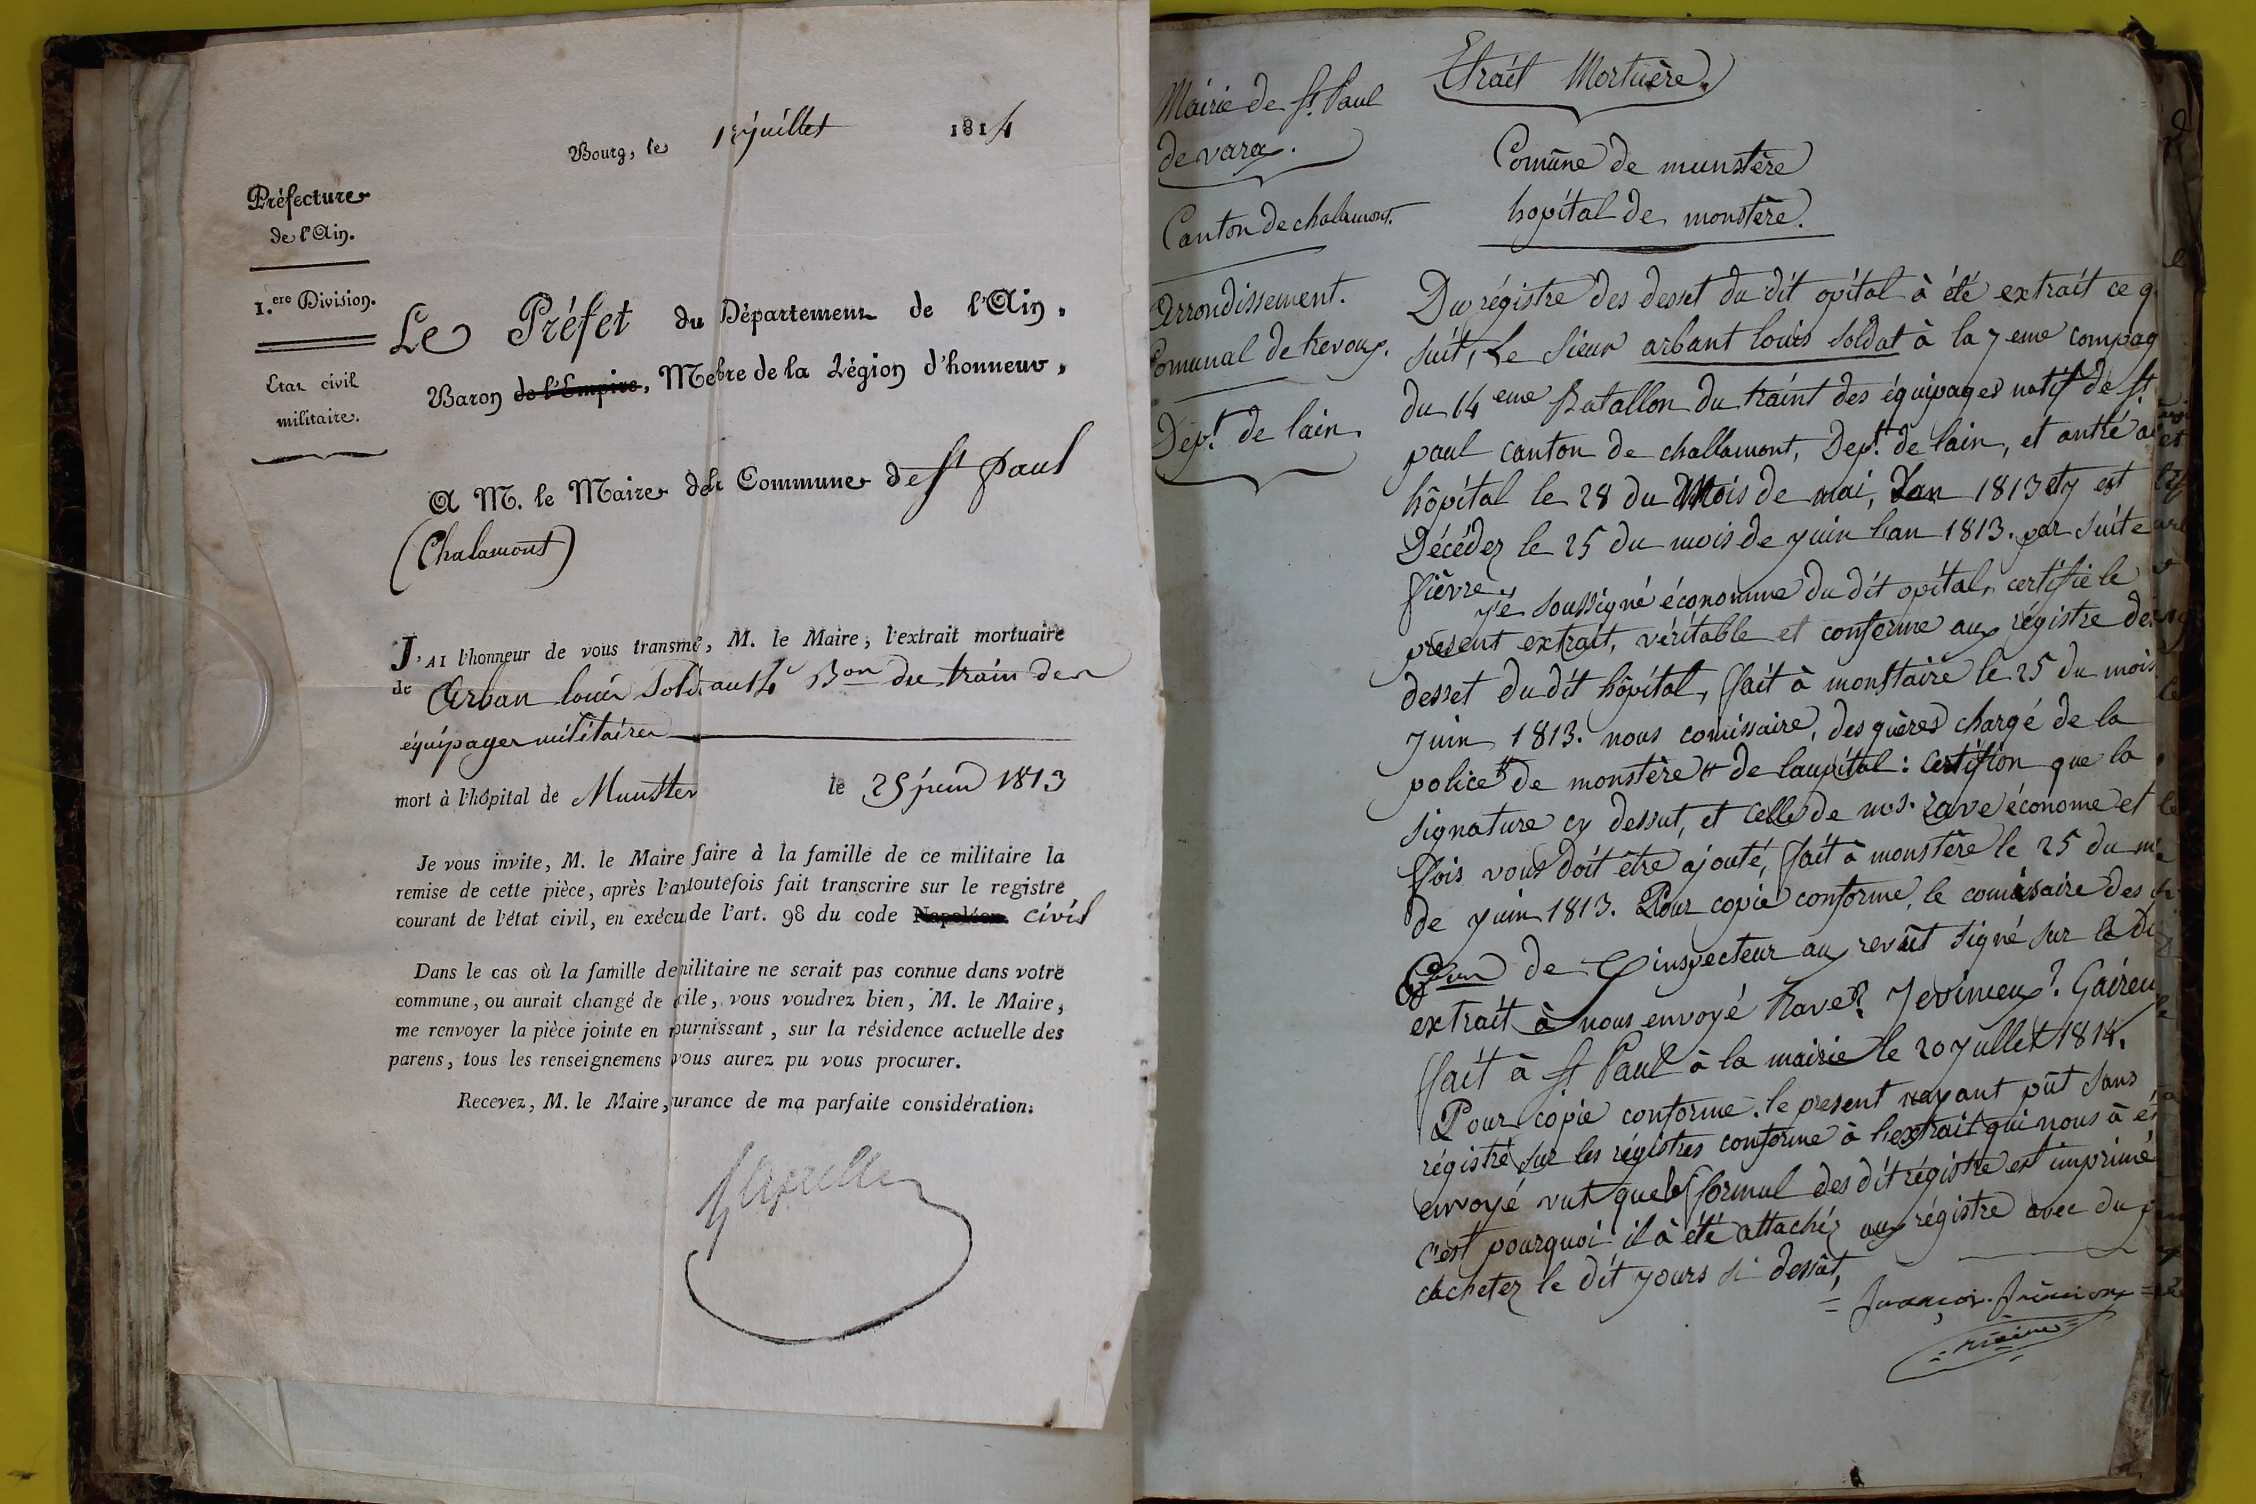 Bourg, le 1er juillet 1814
Préfecture
de l'Ain.
1.ere Division.
Etat civil
militaire.
Le Préfet du Département de l'Ain,
Baron de l'Empire, Mebre de la Légion d'honneur,
A M. le Maire de la Commune de St Paul
(Chalamont)
J'AI l'honneur de vous transmé, M. le Maire, l'extrait mortuaire
de Arban louis Soldt au 14e Bon du train des
équipages militaires
mort à l'hôpital de Munster le 25 juin 1813
Je vous invite, M. le Maire faire à la famille de ce militaire la
remise de cette pièce, après l'av toutefois fait transcrire sur le registre
courant de l'état civil, en exécu de l'art. 98 du code Napoléon. civil
Dans le cas où la famille de militaire ne serait pas connue dans votre
commune, ou aurait changé de cile, vous voudrez bien, M. le Maire,
me renvoyer la pièce jointe en fournissant, sur la résidence actuelle des
parens, tous les renseignemens vous aurez pu vous procurer.
Recevez, M. le Maire, urance de ma parfaite considération.
Mairie de St. Paul
de varax.
Canton de chalamont.
Arrondissement.
Comunal de trevoux.
Dept. de lain.
Etrait Mortuère
Comune de munstère
hopital de monstère.
Du régistre des desset du dit opital à été extrait ce q
suit, Le Sieur arbant louis soldat à la 7 eme compag
du 14 eme Batallon du traint des équipages natif de St
paul canton de challamont, Dept. de lain, et antré a
hôpital le 28 du Mois de mai, Lan 1813 et y est
Décédez le 25 du mois de juin han 1813. par suite
fièvre.
Jé soussigné économme du dit opital, certifie le
present extrait, véritable et conforme aux régistre de
desset du dit hôpital, fait à monstaire le 25 du mois
Juin 1813. nous comissaire, des guères chargé de la
police de monstère de laupital: certifion que la
signature cy dessut, et celle de mos. rave économe et
fois vous doit être ajouté, fait à monstère le 25 du m
de juin 1813. Pour copie conforme, le comissaire des
de inspecteur aux revût signé sur le Di
extrait à nous envoyé
fait à St Paul à la mairie le 20 Jullet 1814.
Pour copie conforme. le present nayant pût sans
régistré sur les régistres conforme à lextrait qui nous à ét
envoyé vut que les formul des dit régistre est imprimé
c'est pourquoi il à été attachéz aux régistre avec du
cacheter le dit jours si dessût,
maire